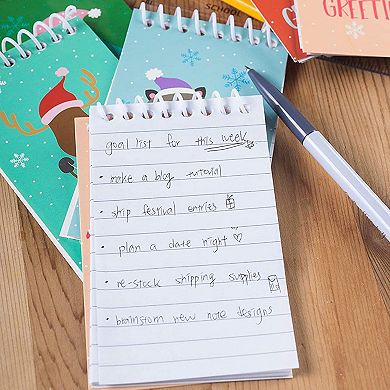 GREETING
goal list for this week
• make a blog tutorial
• ship festival entries
• plan a date night ♡
• re-stock shipping supplies
• brainstorm new note designs